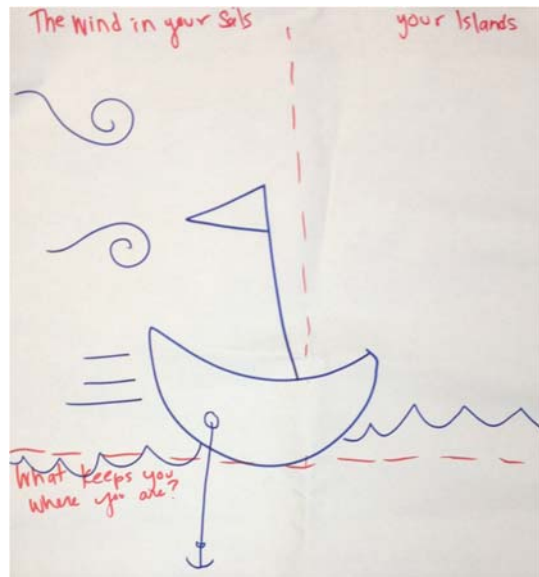 The Wind in your Sails
your Islands
What keeps you
where you are?